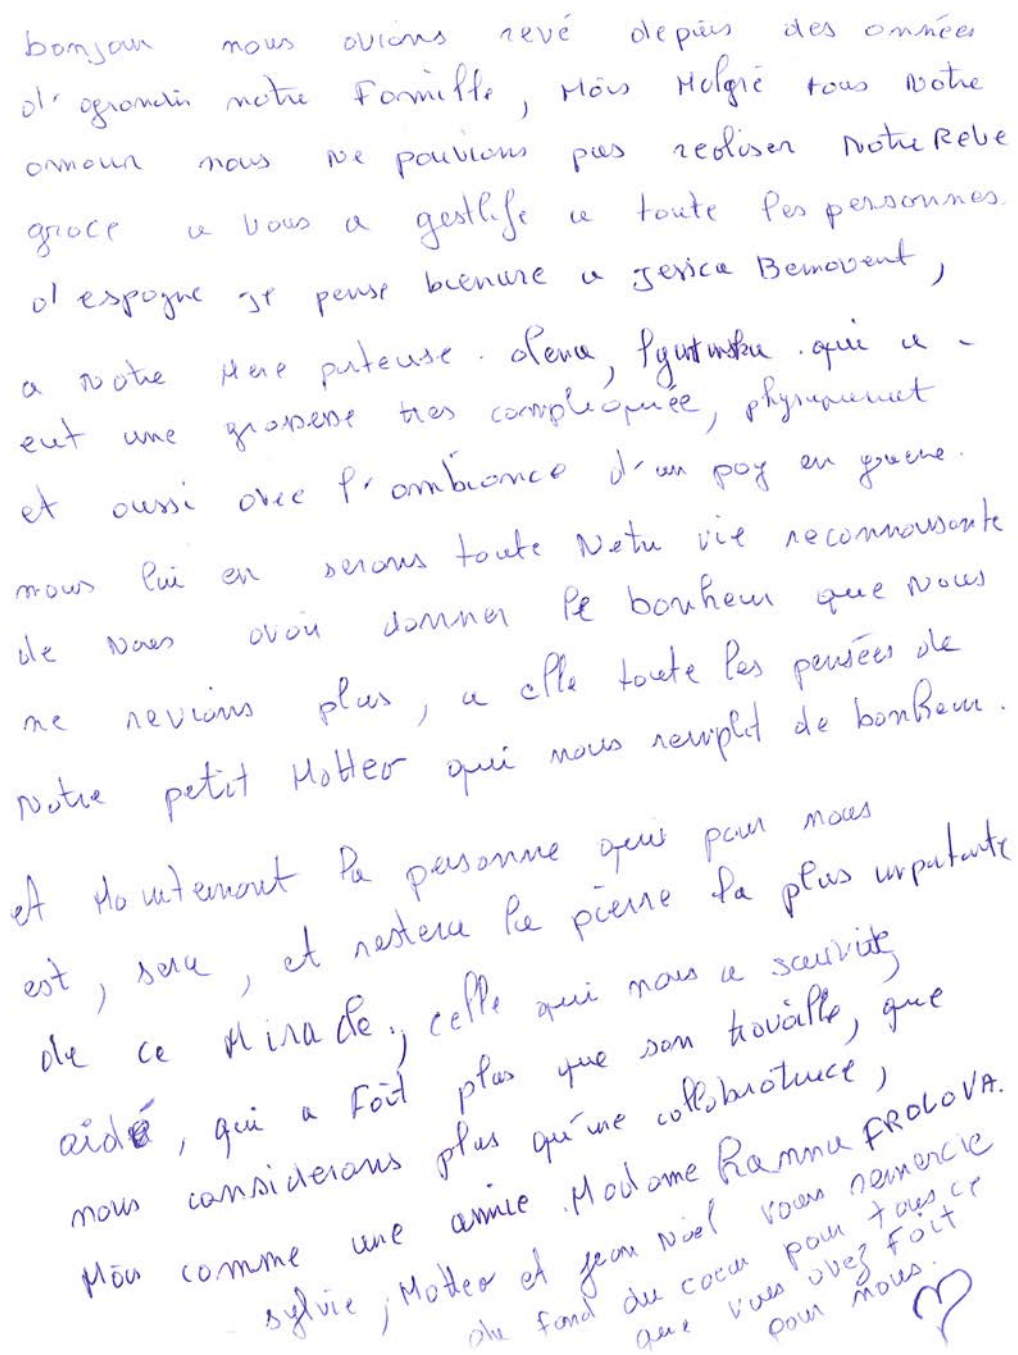 bonjour nous avions revé depuis des années
d'agrandir notre Famille, Mais Malgré tous Notre
amour nous Ne pouvions pas realiser Notre Reve
grace a vous a gestlife a toute les personnes.
d'espagne je pense biensure a Jesica Bemavent,
a Notre Mere porteuse. Olena, qui a
eut une grossesse tres compliquée, physiquement
et aussi avec l'ambiance d'un pay en guerre.
nous lui en serons toute Notre vie reconnaissante
de Nous avoir donner le bonheur que Nous
ne revions plus, a elle toute les pensées de
Notre petit Matteo qui nous remplit de bonheur.
et Maintenant la personne qui pour nous
est, sera, et restera la pierre la plus importante
de ce Miracle, celle qui nous a
aidé, qui a Fait plus que son travaille, que
nous considerons plus qu'une collaboratrice,
Mais comme une amie. Madame Hanna FROLOVA.
sylvie, Matteo et jean Noël vous remercie
du fond du coeur pour tous ce
que vous avez Fait
pour nous.